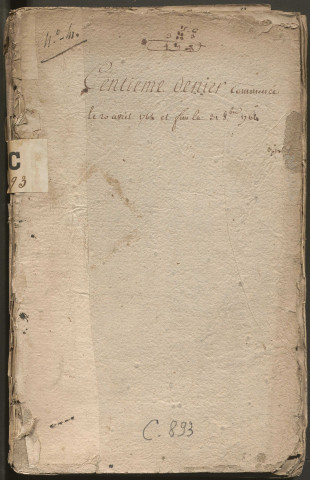 N.° 4.
Centieme denier commencé
le 20 avril 176 et fini le 31 8bre 176
C
93
C. 893